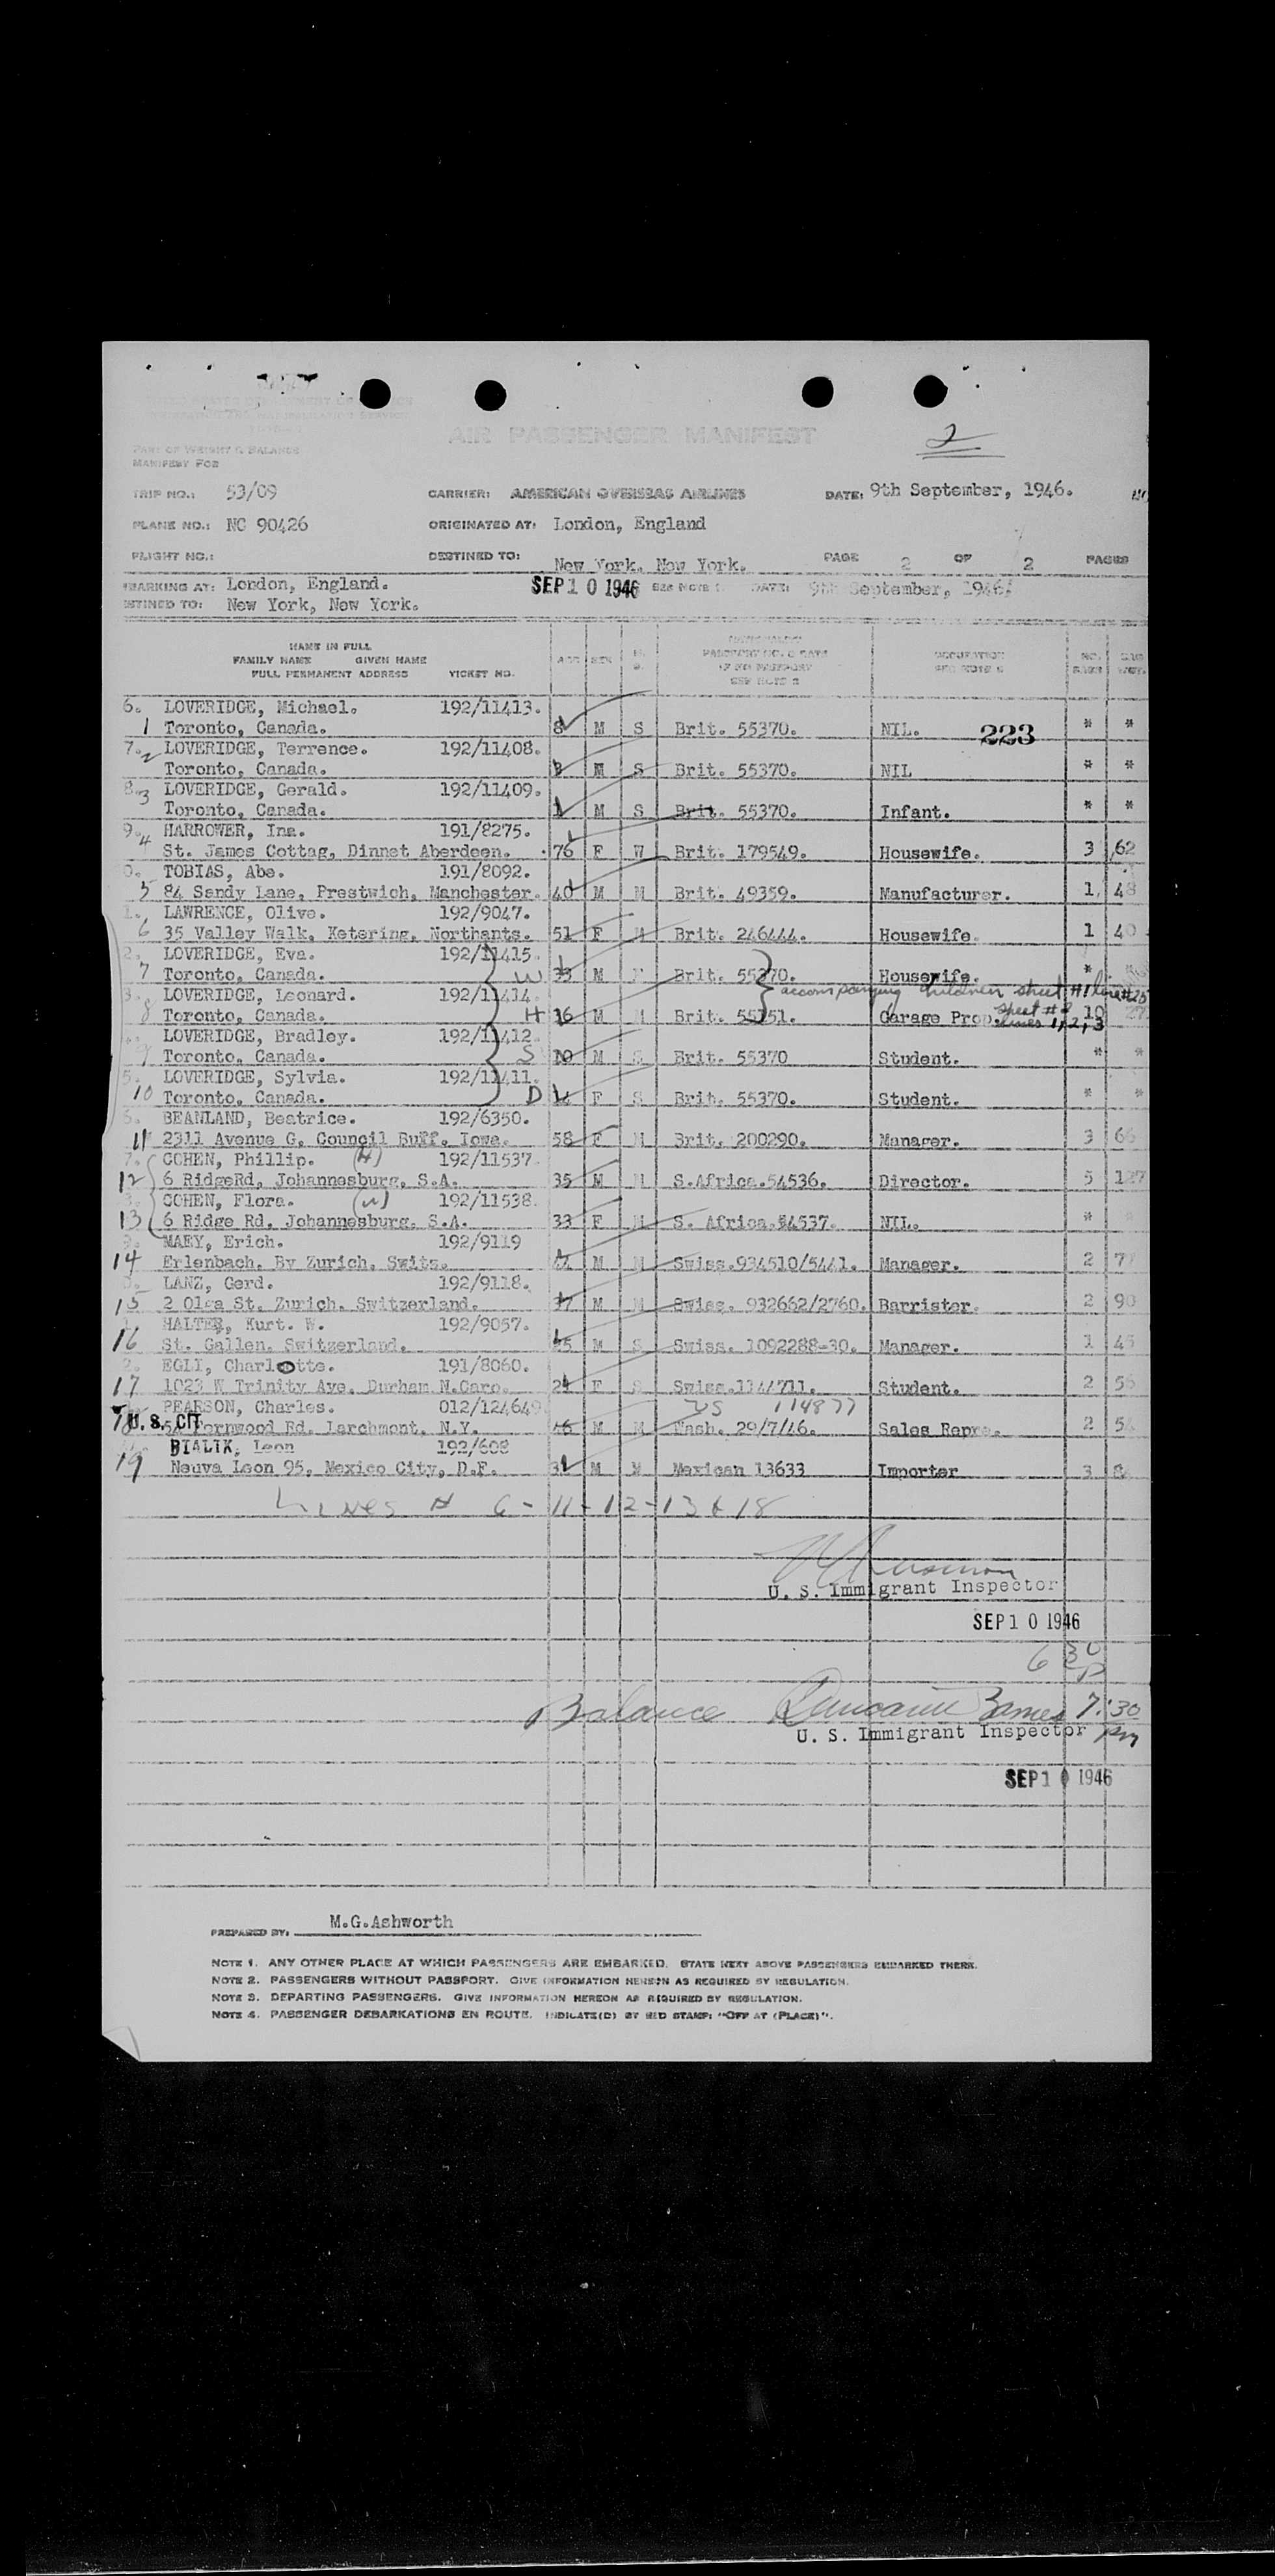 AIR PASSENGER MANIFEST
2
PART OF WEIGHT & BALANCE
MANIFEST FOR
TRIP NO.: 53/09 CARRIER: AMERICAN OVERSEAS AIRLINES DATE: 9th September, 1946.
PLANE NO.: NC 90426 ORIGINATED AT: London, England
FLIGHT NO.: DESTINED TO: New York. New York. PAGE 2 OF 2 PAGES
MBARKING AT: London, England. SEP 10 1946 SEE NOTE 1. DATE: 9th September, 1946.
STINED TO: New York, New York.
NAME IN FULL
FAMILY NAME GIVEN NAME
FULL PERMANENT ADDRESS TICKET NO. AGE SEX
PASSPORT NO. & DATE
IF NO PASSPORT
SEE NOTE 2
OCCUPATION
6. LOVERIDGE, Michael. 192/11413.
1 Toronto, Canada. 8 M S Brit. 55370. NIL. 223 * *
7. LOVERIDGE, Terrence. 192/11408.
2 Toronto, Canada. M S Brit. 55370. NIL * *
8. LOVERIDGE, Gerald. 192/11409.
3 Toronto, Canada. 1 M S Brit. 55370. Infant. * *
9. HARROWER, Ina. 191/8275.
4 St. James Cottag, Dinnet Aberdeen. 76 F W Brit. 179549. Housewife. 3 62
0. TOBIAS, Abe. 191/8092.
5 84 Sandy Lane, Prestwich, Manchester. 40 M M Brit. 49359. Manufacturer. 1 48
1. LAWRENCE, Olive. 192/9047.
6 35 Valley Walk, Ketering, Northants. 51 F M Brit. 246444. Housewife. 1 40
2. LOVERIDGE, Eva. 192/11415.
7 Toronto, Canada. W 33 M F Brit. 55370. Housewife. *
accompanying children sheet #1 line #25
3. LOVERIDGE, Leonard. 192/11414.
sheet #2
8 Toronto, Canada. H 36 M M Brit. 55351. Garage Prop. lines 1, 2, 3 10 27
4. LOVERIDGE, Bradley. 192/11412.
9 Toronto, Canada. S 10 M S Brit. 55370 Student. * *
5. LOVERIDGE, Sylvia. 192/11411.
10 Toronto, Canada. D F S Brit. 55370. Student. * *
6. BEANLAND, Beatrice. 192/6350.
11 2311 Avenue G. Council Buff. Iowa. 58 F M Brit. 200290. Manager. 3 66
7. COHEN, Phillip. (H) 192/11537.
12 6 RidgeRd, Johannesburg, S.A. 35 M M S.Africa.54536. Director. 5 127
8. COHEN, Flora. (W) 192/11538.
13 6 Ridge Rd. Johannesburg. S.A. 33 F M S. Africa.54537. NIL. *
9. MAEY, Erich. 192/9119
14 Erlenbach. By Zurich. Switz. M M Swiss.934510/5441. Manager. 2 77
0. LANZ, Gerd. 192/9118.
15 2 Olga St. Zurich. Switzerland. 37 M M Swiss. 932662/2760. Barrister. 2 90
1. HALTER, Kurt. W. 192/9057.
16 St. Gallen. Switzerland. M S Swiss. 1092288-30. Manager. 1 45
2. EGLI, Charlotte. 191/8060.
17 1023 W Trinity Ave. Durham N.Caro. 24 F S Swiss.1144711. Student. 2 56
PEARSON, Charles. 012/124649 US 114877
18 U. S. CIT Fernwood Rd. Larchmont. N.Y. 46 M M Wash. 29/7/46. Sales Repre. 2 54
BIALIK, Leon 192/608
19 Neuva Leon 95, Mexico City, D.F. M M Mexican 13633 Importer 3
Lines # 6-11-12-13 & 18
U. S. Immigrant Inspector
SEP 10 1946
6 30
P
Balance Barnes 7:30
U. S. Immigrant Inspector pm
SEP 10 1946
PREPARED BY: M.G.Ashworth
NOTE 1. ANY OTHER PLACE AT WHICH PASSENGERS ARE EMBARKED. STATE NEXT ABOVE PASSENGERS EMBARKED THERE.
NOTE 2. PASSENGERS WITHOUT PASSPORT. GIVE INFORMATION HEREON AS REQUIRED BY REGULATION.
NOTE 3. DEPARTING PASSENGERS. GIVE INFORMATION HEREON AS REQUIRED BY REGULATION.
NOTE 4. PASSENGER DEBARKATIONS EN ROUTE. INDICATE(D) BY RED STAMP: "OFF AT (PLACE)".